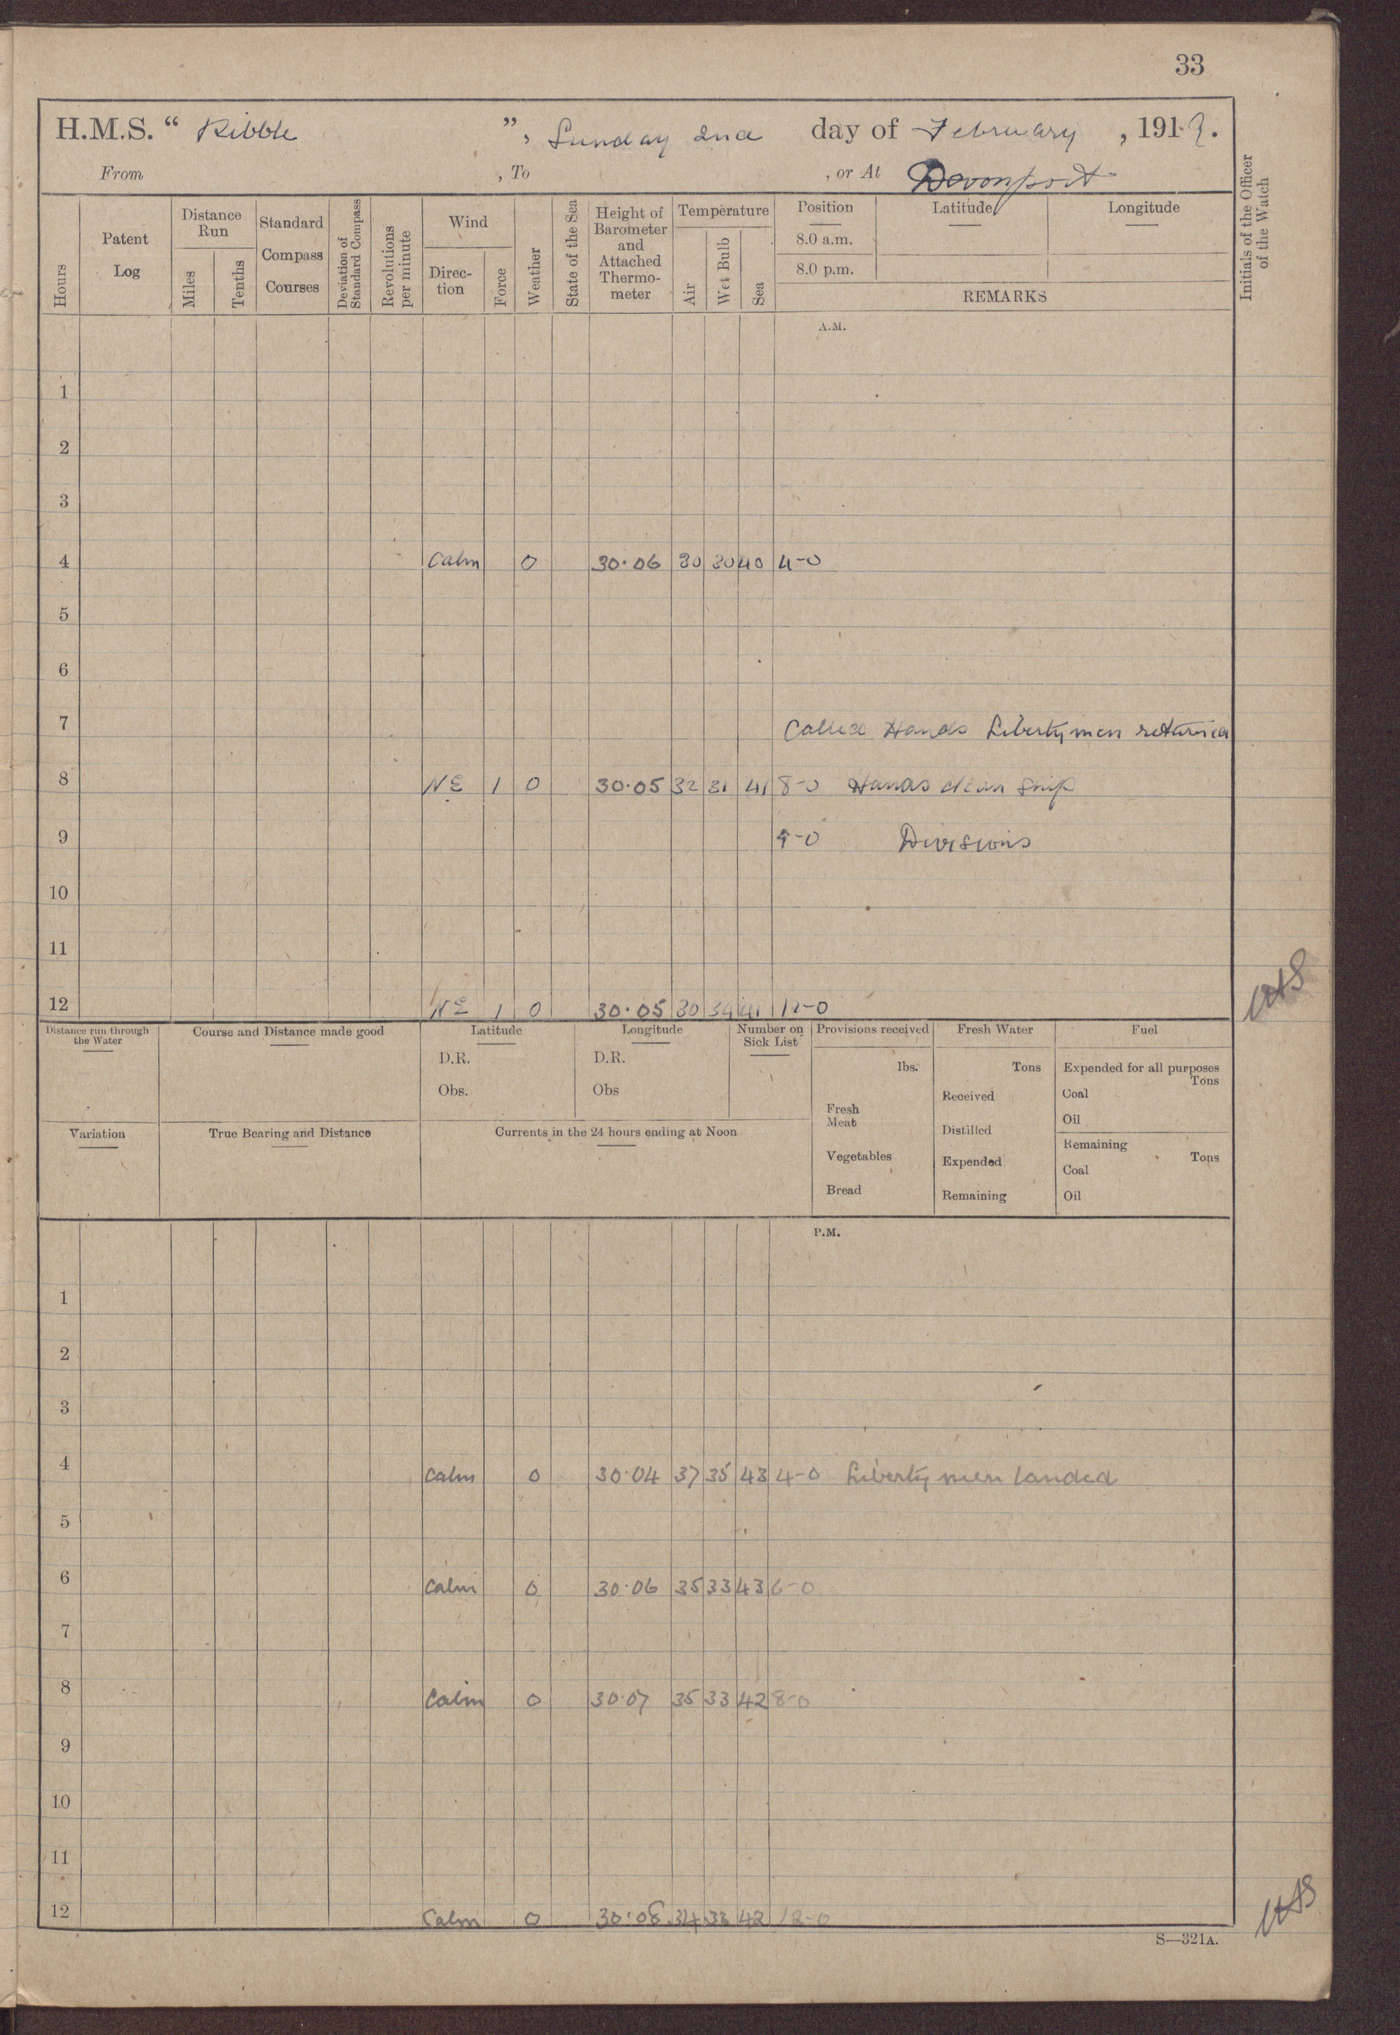 33
H.M.S. “ Ribble ”, Sunday 2nd day of February , 191 .
From , To , or At Devonport
Hours
Patent Log
Distance Run
Miles
Tenths
Standard Compass Courses
Deviation of Standard Compass
Revolutions per minute
Wind
Direc-tion
Force
Weather
State of the Sea
Height of Barometer and Attached Thermo-meter
Temperature
Air
Wet Bulb
Sea
Position
8.0 a.m.
8.0 p.m.
Latitude
Longitude
REMARKS
Initials of the Officer of the Watch
A.M.
1
2
3
4 Calm 0 30.06 30 30 40 4-0
5
6
7 Called Hands Libertymen returned
8 NE 1 0 30.05 32 31 41 8-0 Hands clean Ship
9 9-0 Divisions
10
11
12 NE 1 0 30.05 30 34 41 12-0
Distance run through the Water
Course and Distance made good
Latitude
D.R.
Obs.
Longitude
D.R.
Obs
Number on Sick List
Provisions received
lbs.
Fresh Meat
Vegetables
Bread
Fresh Water
Tons
Received
Distilled
Expended
Remaining
Fuel
Expended for all purposes
Tons
Coal
Oil
Remaining
Tons
Coal
Oil
Variation
True Bearing and Distance
Currents in the 24 hours ending at Noon
P.M.
1
2
3
4 Calm 0 30.04 37 35 43 4-0 Liberty men landed
5
6 Calm 0 30.06 35 33 43 6-0
7
8 Calm 0 30.07 35 33 42 8-0
9
10
11
12 Calm 0 30.08 34 33 42 12-0
S—321A.